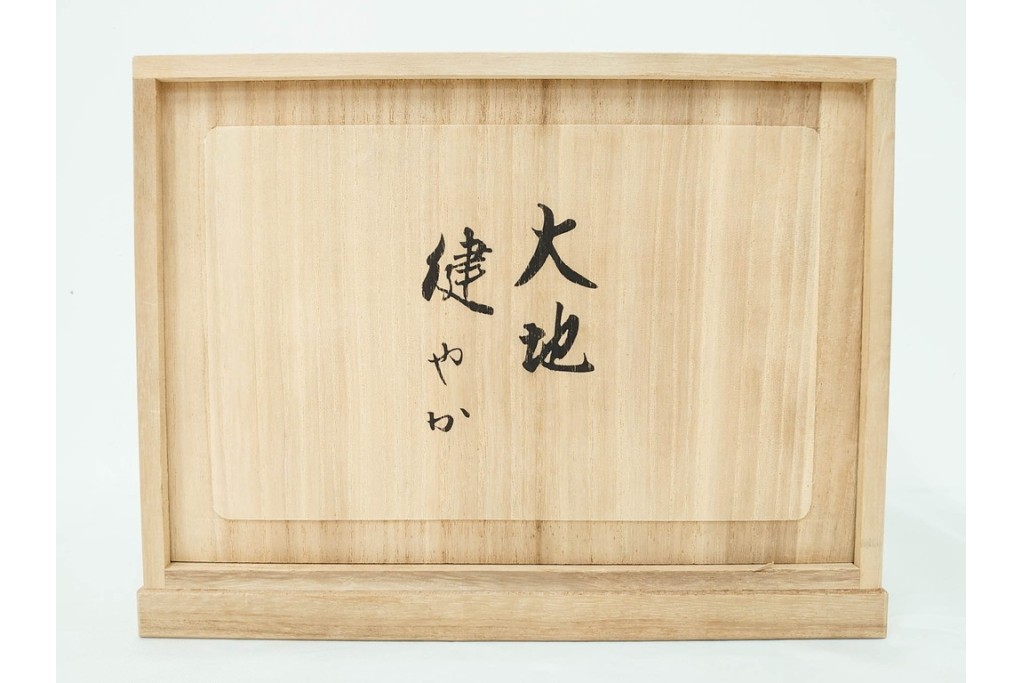 大地
健やか